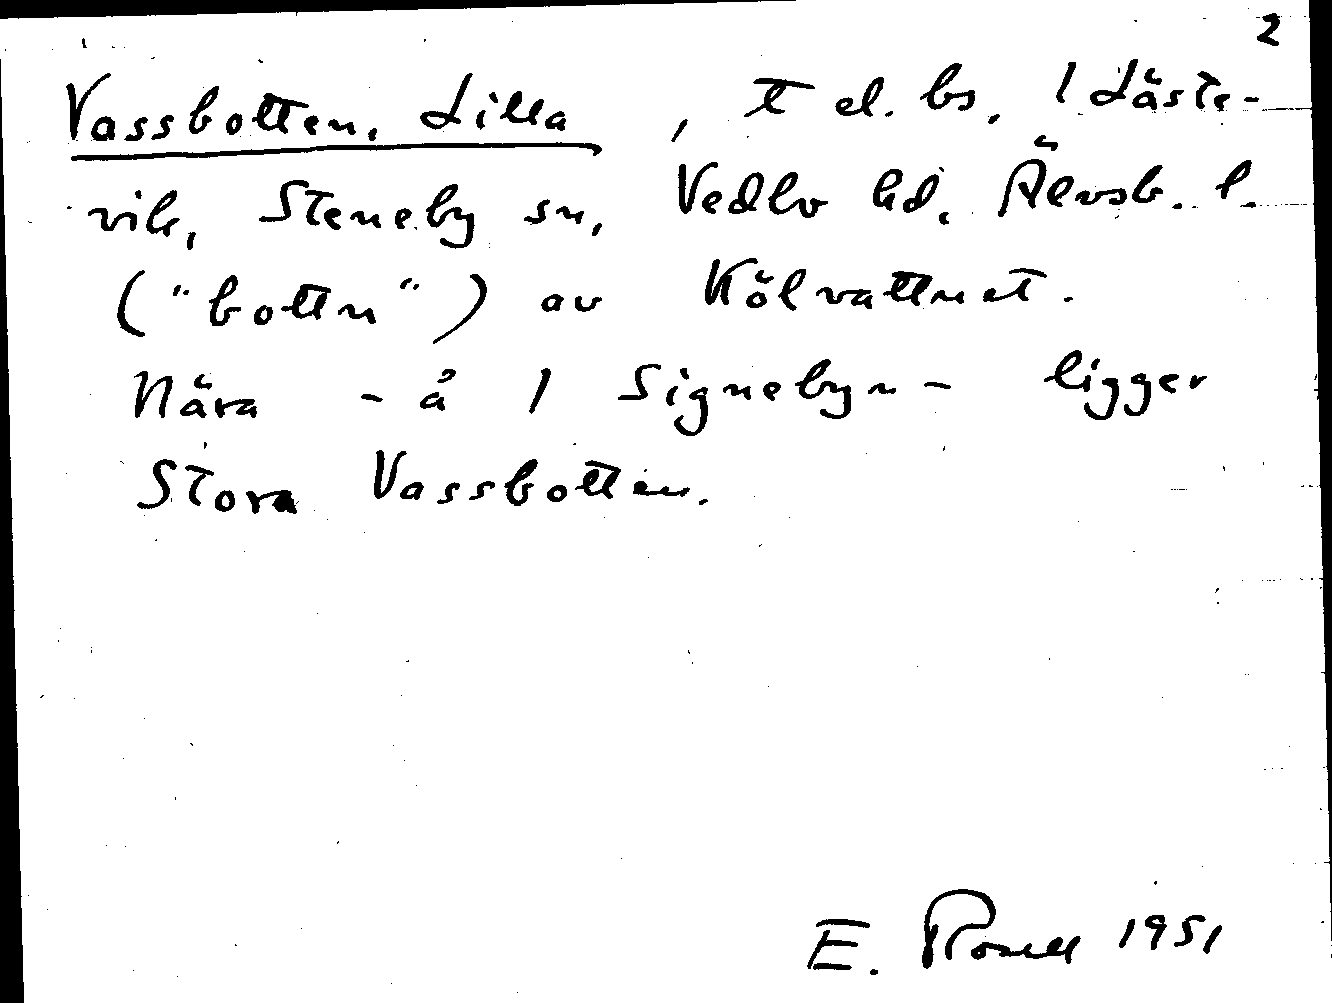 2
Vassbotten, Lilla, t el. bs. / Låste-
vik, Steneby sn, Vedbo hd, Älvsb. l.
("bottn") av Kölvattnet.
Nära - å / Signebyn - ligger
Stora Vassbotten.
E. Rosell 1951